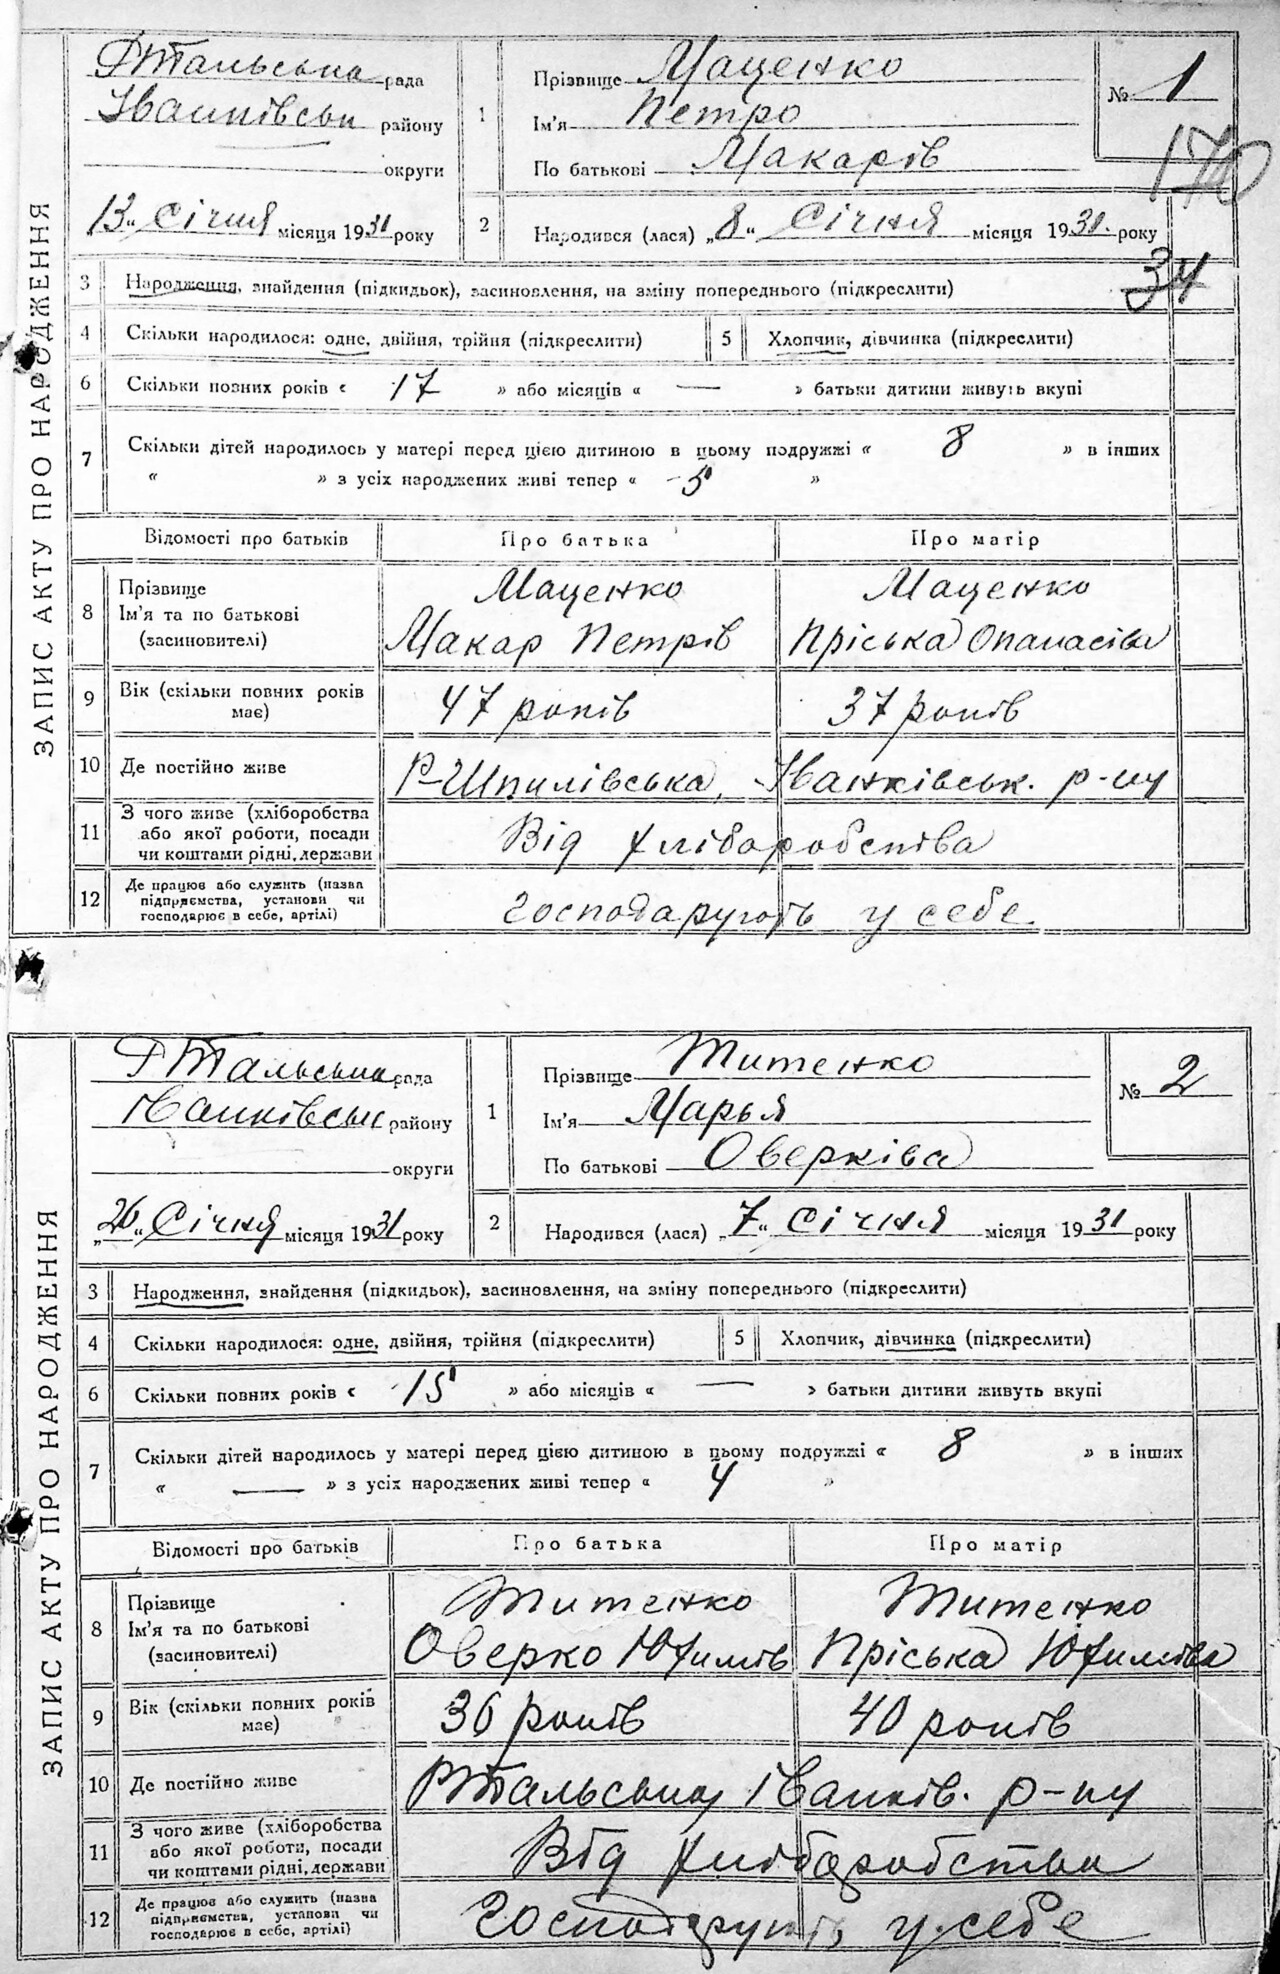 ЗАПИС АКТУ ПРО НАРОДЖЕННЯ
РТальська рада
Іванківськ району
округи
13 „ Січня місяця 1931 року
1 Прізвище Маценко
Ім'я Петро
По батькові Макарів
№ 1
170
34
2 Народився (лася) „ 8 “ Січня місяця 1931. року
3 Народження, знайдення (підкидьок), засиновлення, на зміну попереднього (підкреслити)
4 Скільки народилося: одне, двійня, трійня (підкреслити) 5 Хлопчик, дівчинка (підкреслити)
6 Скільки повних років « 17 » або місяців « — » батьки дитини живуть вкупі
7 Скільки дітей народилось у матері перед цією дитиною в цьому подружжі « 8 » в інших
« » з усіх народжених живі тепер « 5 »
Відомості про батьків Про батька Про матір
8 Прізвище Ім'я та по батькові (засиновителі) Маценко Макар Петрів Маценко Пріська Опанасіва
9 Вік (скільки повних років має) 47 років 37 років
10 Де постійно живе Р-Шпилівська, Іванківськ. р-ну
11 З чого живе (хліборобства або якої роботи, посади чи коштами рідні, держави Від хліборобства
12 Де працює або служить (назва підприємства, установи чи господарює в себе, артілі) господарують у себе
ЗАПИС АКТУ ПРО НАРОДЖЕННЯ
РТальська рада
Іванківськ району
округи
„ 26 “ Січня місяця 1931 року
1 Прізвище Титенко
Ім'я Марья
По батькові Оверківа
№ 2
2 Народився (лася) „ 7 “ Січня місяця 1931 року
3 Народження, знайдення (підкидьок), засиновлення, на зміну попереднього (підкреслити)
4 Скільки народилося: одне, двійня, трійня (підкреслити) 5 Хлопчик, дівчинка (підкреслити)
6 Скільки повних років « 15 » або місяців « — » батьки дитини живуть вкупі
7 Скільки дітей народилось у матері перед цією дитиною в цьому подружжі « 8 » в інших
« — » з усіх народжених живі тепер « 4 »
Відомості про батьків Про батька Про матір
8 Прізвище Ім'я та по батькові (засиновителі) Титенко Оверко Юхимів Титенко Пріська Юхиміва
9 Вік (скільки повних років має) 36 років 40 років
10 Де постійно живе РТальська Іванків. р-ну
11 З чого живе (хліборобства або якої роботи, посади чи коштами рідні, держави Від хліборобства
12 Де працює або служить (назва підприємства, установи чи господарює в себе, артілі) Господарують у себе